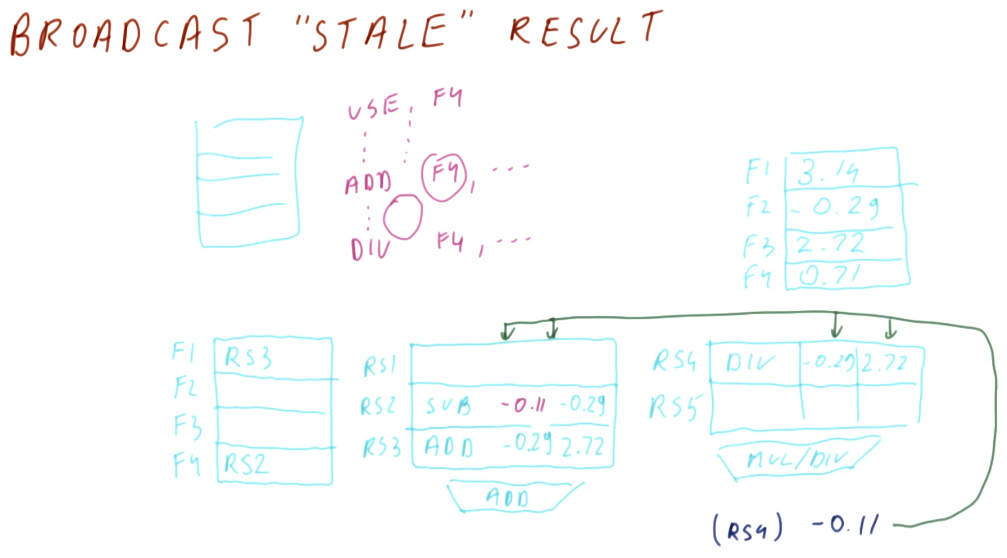 BROADCAST "STALE" RESULT
USE, F4
ADD F4, ...
DIV F4, ...
F1 3.14
F2 -0.29
F3 2.72
F4 0.71
F1 RS3
F2
F3
F4 RS2
RS1
RS2 SUB -0.11 -0.29
RS3 ADD -0.29 2.72
ADD
RS4 DIV -0.29 2.72
RS5
MUL/DIV
(RS4) -0.11